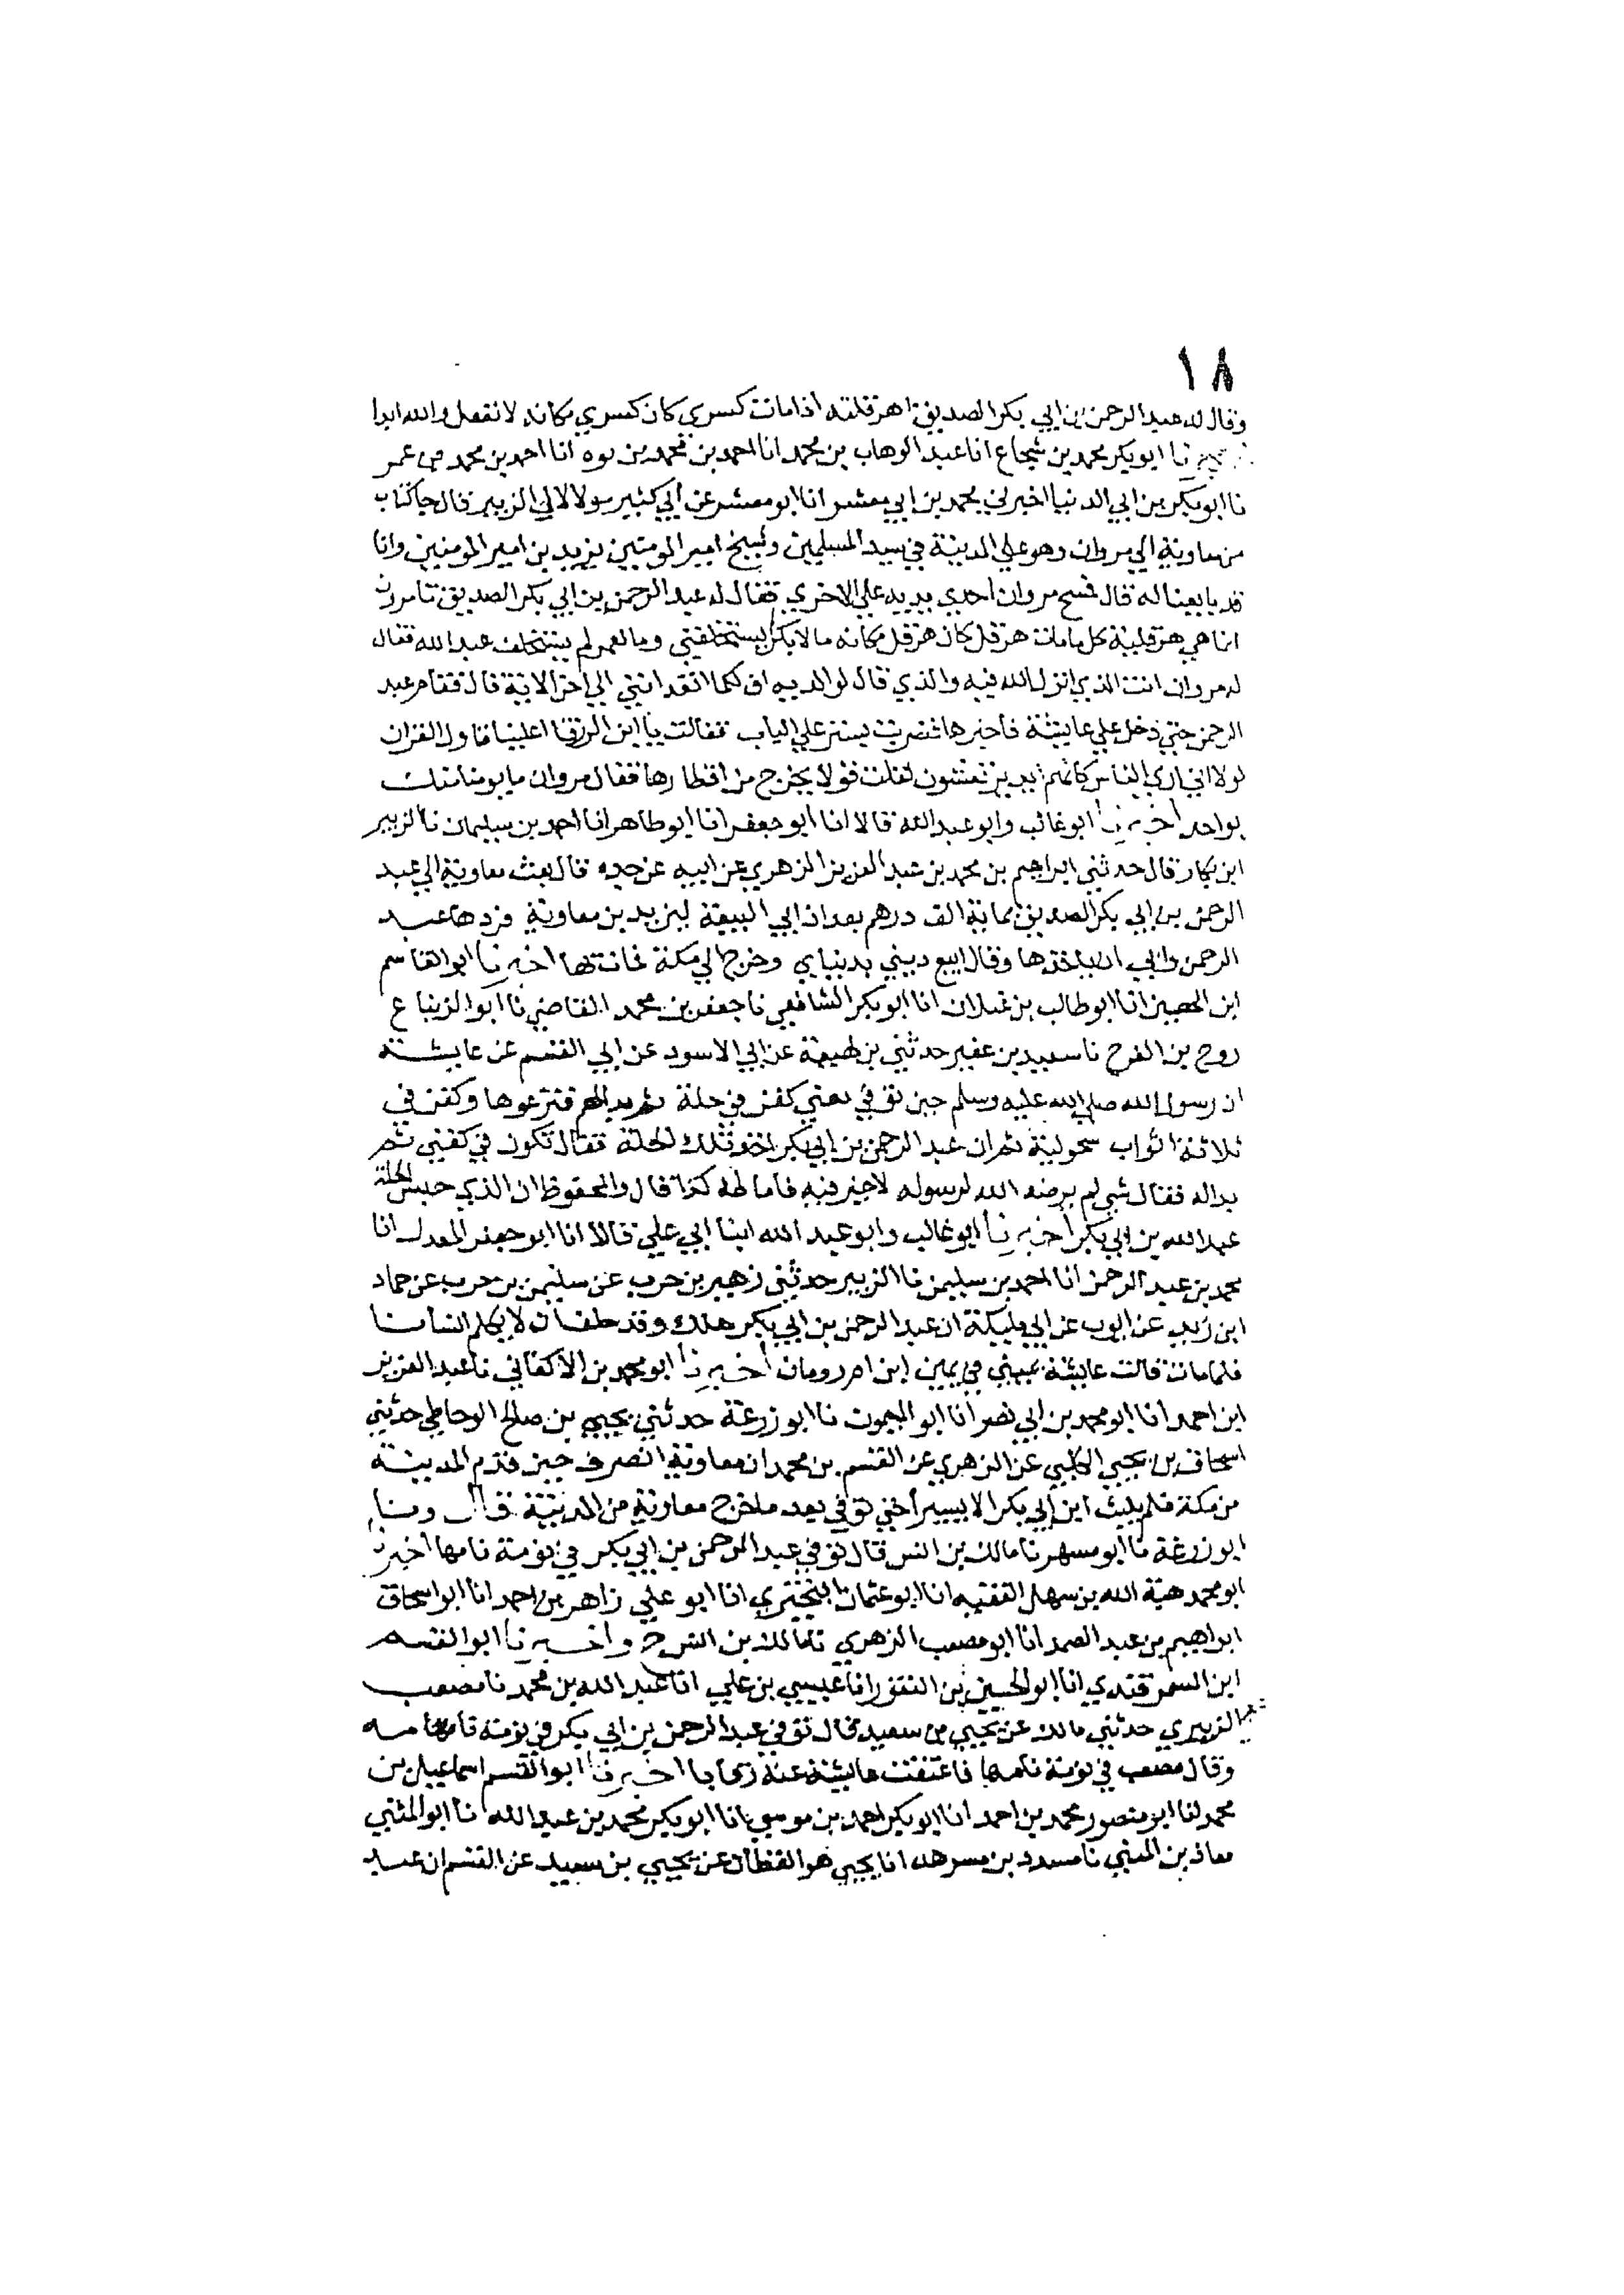 ١٨
وقال له عبد الرحمن بن ابي بكر الصديق اهرقلية اذا مات كسرى كان كسري مكانه لا نفعل والله ابدا
ابو بكر محمد بن شجاع انا عبد الوهاب بن محمد انا احمد بن محمد بن يوه انا احمد بن محمد بن عمر
نا ابو بكر بن ابي الدنيا اخبرني محمد بن ابي معشر انا ابو معشر عن ابي كثير مولا لال الزبير قال جا كتاب
من معاوية الي مروان وهو علي المدينة في سيد المسلمين وشيخ امير المومنين يزيد بن امير المومنين وانا
قد بايعنا له قال فمسح مروان احدي يديه علي الاخري فقال له عبد الرحمن بن ابي بكر الصديق تا مروان
انما هي هرقلية كل ما مات هرقل كان هرقل مكانه ما لابي بكر لم يستخلفني وما لعمر لم يستخلف عبد الله فقال
له مروان انت الذي انزل الله فيه والذي قال لوالديه اف لكما اتعدانني الي اخر الاية قال فقام عبد
الرحمن حتي دخل علي عايشة فاخبرها فضربت بستر علي الباب فقالت يا ابن الزرقا اعلينا تاول القران
لولا اني اري الناس كانهم ايد يرتعشون لقلت قولا يخرج من اقطارها فقال مروان ما يومنا منك
بواحد اخبرنا ابو غالب وابو عبد الله قالا انا ابو جعفر انا ابو طاهر انا احمد بن سليمان نا الزبير
ابن بكار قال حدثني ابراهيم بن محمد بن عبد العزيز الزهري عن ابيه عن جده قال بعث معاوية الي عبد
الرحمن بن ابي بكر الصديق بماية الف درهم بعد ان ابي البيعة ليزيد بن معاوية فردها عبد
الرحمن وابي ان ياخذها وقال ابيع ديني بدنياي وخرج الي مكة فمات بها اخبرنا ابو القاسم
ابن الحصين انا ابو طالب بن غيلان انا ابو بكر الشافعي نا جعفر بن محمد القاضي نا ابو الزنباع
روح بن الفرج نا سعيد بن عفير حدثني بن لهيعة عن ابي الاسود عن ابي القسم عن عايشة
ان رسول الله صلي الله عليه وسلم حين توفي يعني كفن في حلة ثم بدا لهم فنزعوها وكفن في
ثلاثة اثواب سحولية ثم ان عبد الرحمن بن ابي بكر اخذ تلك الحلة فقال تكون في كفني ثم
بدا له فقال شي لم يرضه الله لرسوله لا خير فيه فاماطه كذا قال والمحفوظ ان الذي حبس الحلة
عبد الله بن ابي بكر اخبرنا ابو غالب وابو عبد الله ابنا ابي علي قالا انا ابو جعفر المعدل انا
محمد بن عبد الرحمن انا احمد بن سليمن نا الزبير حدثني زهير بن حرب عن سليمن بن حرب عن حماد
ابن زيد عن ايوب عن ابي مليكة ان عبد الرحمن بن ابي بكر هلك وقد حلف ان لا يكلم انسانا
فلما مات قالت عايشة يميني في يمين ابن ام رومان اخبرنا ابو محمد بن الاكفاني نا عبد العزيز
ابن احمد انا ابو محمد بن ابي نصر انا ابو الميمون نا ابو زرعة حدثني يحيي بن صالح الوحاظي حدثني
اسحاق بن يحيي الكلبي عن الزهري عن القسم بن محمد ان معاوية انصرف حين قدم المدينة
من مكة فلم يلبث ابن ابي بكر الا يسيرا حتي توفي بعد ما خرج معاوية من المدينة قال ونا
ابو زرعة نا ابو مسهر نا مالك بن انس قال توفي عبد الرحمن بن ابي بكر في نومة نامها اخبرنا
ابو محمد هبة الله بن سهل الفقيه انا ابو عثمان البحيري انا ابو علي زاهر بن احمد انا ابو اسحاق
ابراهيم بن عبد الصمد انا ابو مصعب الزهري نا مالك بن انس ح واخبرنا ابو القسم
ابن السمرقندي انا ابو الحسين بن النقور انا عيسي بن علي انا عبد الله بن محمد نا مصعب
الزبيري حدثني مالك عن يحيي بن سعيد قال توفي عبد الرحمن بن ابي بكر في نومة نامها
وقال مصعب في نومة نامها فاعتقت عايشة عنه رقابا اخبرنا ابو القسم اسماعيل بن
محمد انا ابو منصور محمد بن احمد انا ابو بكر احمد بن موسي انا ابو بكر محمد بن عبد الله نا ابو المثني
معاذ بن المثني نا مسدد بن مسرهد انا يحيي هو القطان عن يحيي بن سعيد عن القسم ان عبد